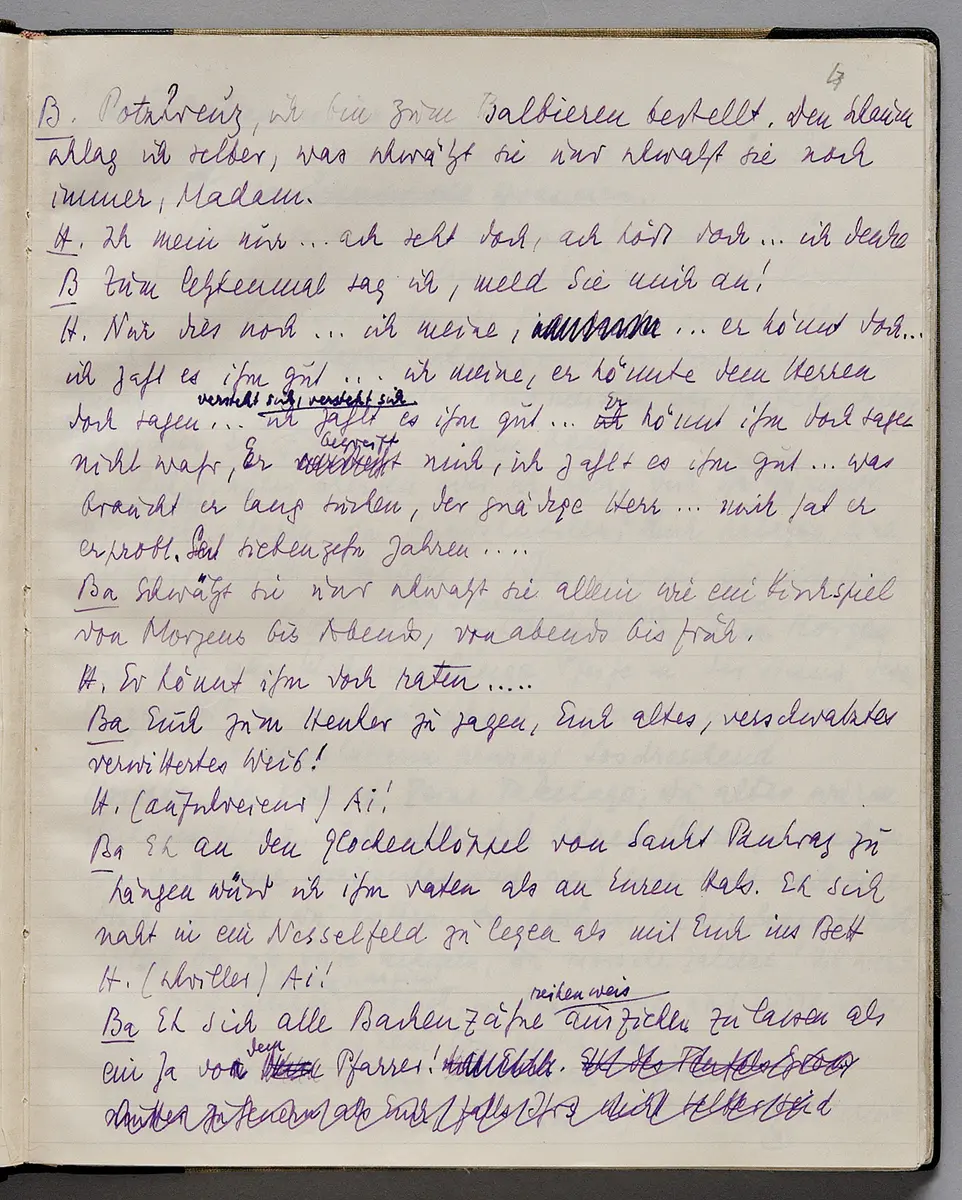 4
B. Potzkreuz, ich bin zum Balbieren bestellt. Den Schaum
schlag ich selber, was schwätzt sie und schwatzt sie noch
immer, Madam.
H. Ich mein nur ... ach seht doch, ach hört doch ... ich denke
B Zum letztenmal sag ich, meld Sie mich an!
H. Nur dies noch ... ich meine, ... er könnt doch...
ich zahl es ihm gut .... ich meine, er könnte dem Herren
versteht sich, versteht sich
doch sagen ... ich zahl es ihm gut ... Er könnt ihm doch sagen
begreift
nicht wahr, Er mich, ich zahl es ihm gut ... was
braucht er lang suchen, der gnädige Herr ... mich hat er
erprobt. Seit siebenzehn Jahren ....
Ba Schwätzt sie und schwatzt sie allein wie ein Kirchspiel
von Morgens bis Abends, von abends bis früh.
H. Er könnt ihm doch raten.....
Ba Euch zum Henker zu jagen, Euch altes, verschwatztes
verwittertes Weib!
H. (aufschreiend) Ai!
Ba Eh an den Glockenklöppel von Sankt Pankraz zu
hängen würd ich ihm raten als an Euren Hals. Eh sich
nakt in ein Nesselfeld zu legen als mit Euch ins Bett
H. (schriller) Ai!
reihenweis
Ba Eh sich alle Backenzähne ausziehen zu lassen als
ein Ja vor dem Pfarrer!